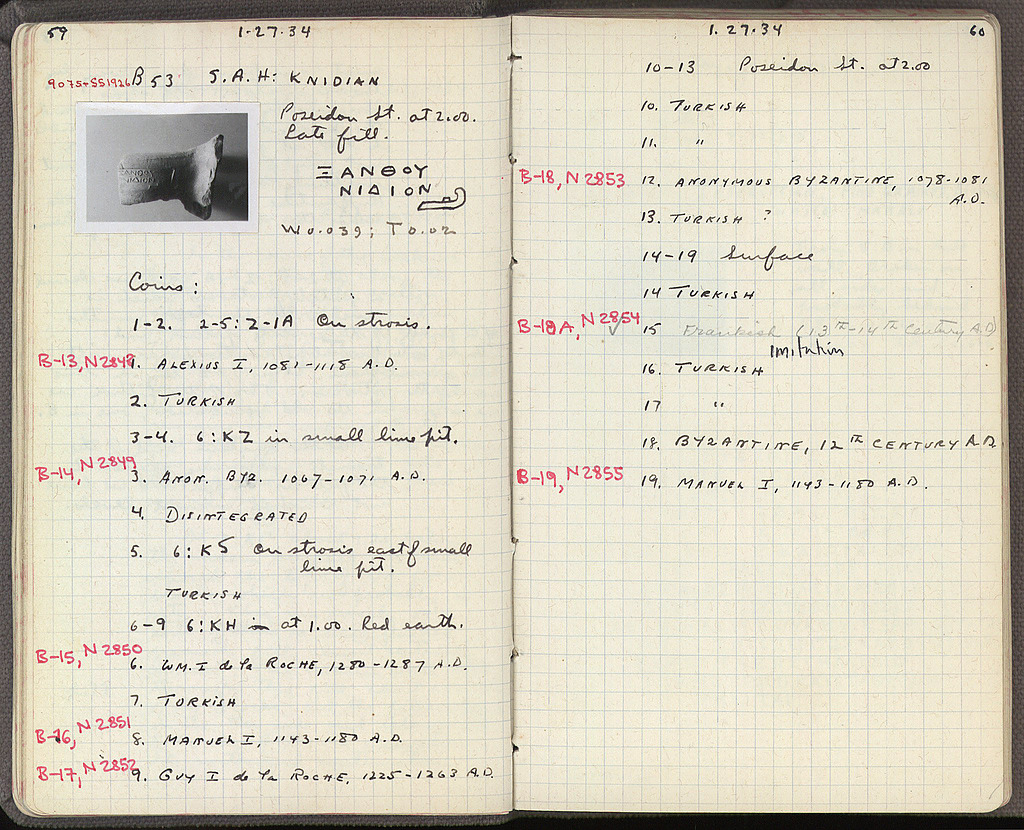 59
1·27·34
9075+SS1926 B 53 S.A.H: KNIDIAN
Poseidon St. at 2.00.
Late fill.
ΞΑΝΘΟΥ
ΝΙΔΙΟΝ
W 0.039; T 0.02
Coins:
1-2. 2-5: 2-1A On strosis.
B-13, N 2848 1. ALEXIUS I, 1081-1118 A.D.
2. TURKISH
3-4. 6: KZ in small lime pit.
B-14, N 2849 3. ANON. BYZ. 1067-1071 A.D.
4. DISINTEGRATED
5. 6: K5 On strosis east of small
lime pit.
TURKISH
6-9 6: KH at 1.00. Red earth.
B-15, N 2850 6. WM. I de la ROCHE, 1280-1287 A.D.
7. TURKISH
B-16, N 2851 8. MANUEL I, 1143-1180 A.D.
B-17, N 2852 9. GUY I de la ROCHE, 1225-1263 A.D.
1. 27.34
60
10-13 Poseidon St. at 2.00
10. TURKISH
11. "
B-18, N 2853 12. ANONYMOUS BYZANTINE, 1078-1081
A.D.
13. TURKISH ?
14-19 Surface
14 TURKISH
B-18A, N 2854 ✓ 15 Frankish (13th-14th Century A.D)
imitation
16. TURKISH
17 "
18. BYZANTINE, 12TH CENTURY A.D.
B-19, N 2855 19. MANUEL I, 1143-1180 A.D.